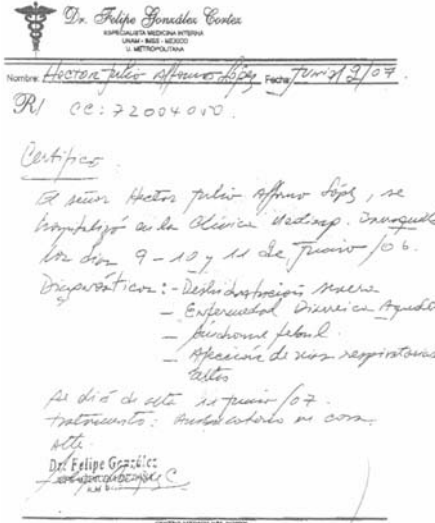 Dr. Felipe González Cortez
ESPECIALISTA MEDICINA INTERNA
UNAM - IMSS - MEXICO
U. METROPOLITANA
Nombre: Hector Julio Alfonso López Fecha: Junio 12/07.
R/ CC: 72004050.
Certifico
El señor Hector Julio Alfonso López, se
hospitalizó en la Clínica Medicap. Ibarranquilla
los días 9 - 10 y 11 de Junio /06.
Diagnósticos: - Deshidratación severa
- Enfermedad Diarreica Aguda
- Síndrome febril.
- Afección de vías respiratorias
altas
se dió de alta 11 Junio /07.
tratamiento: Ambulatorio en casa.
Atte.
Dr. Felipe González